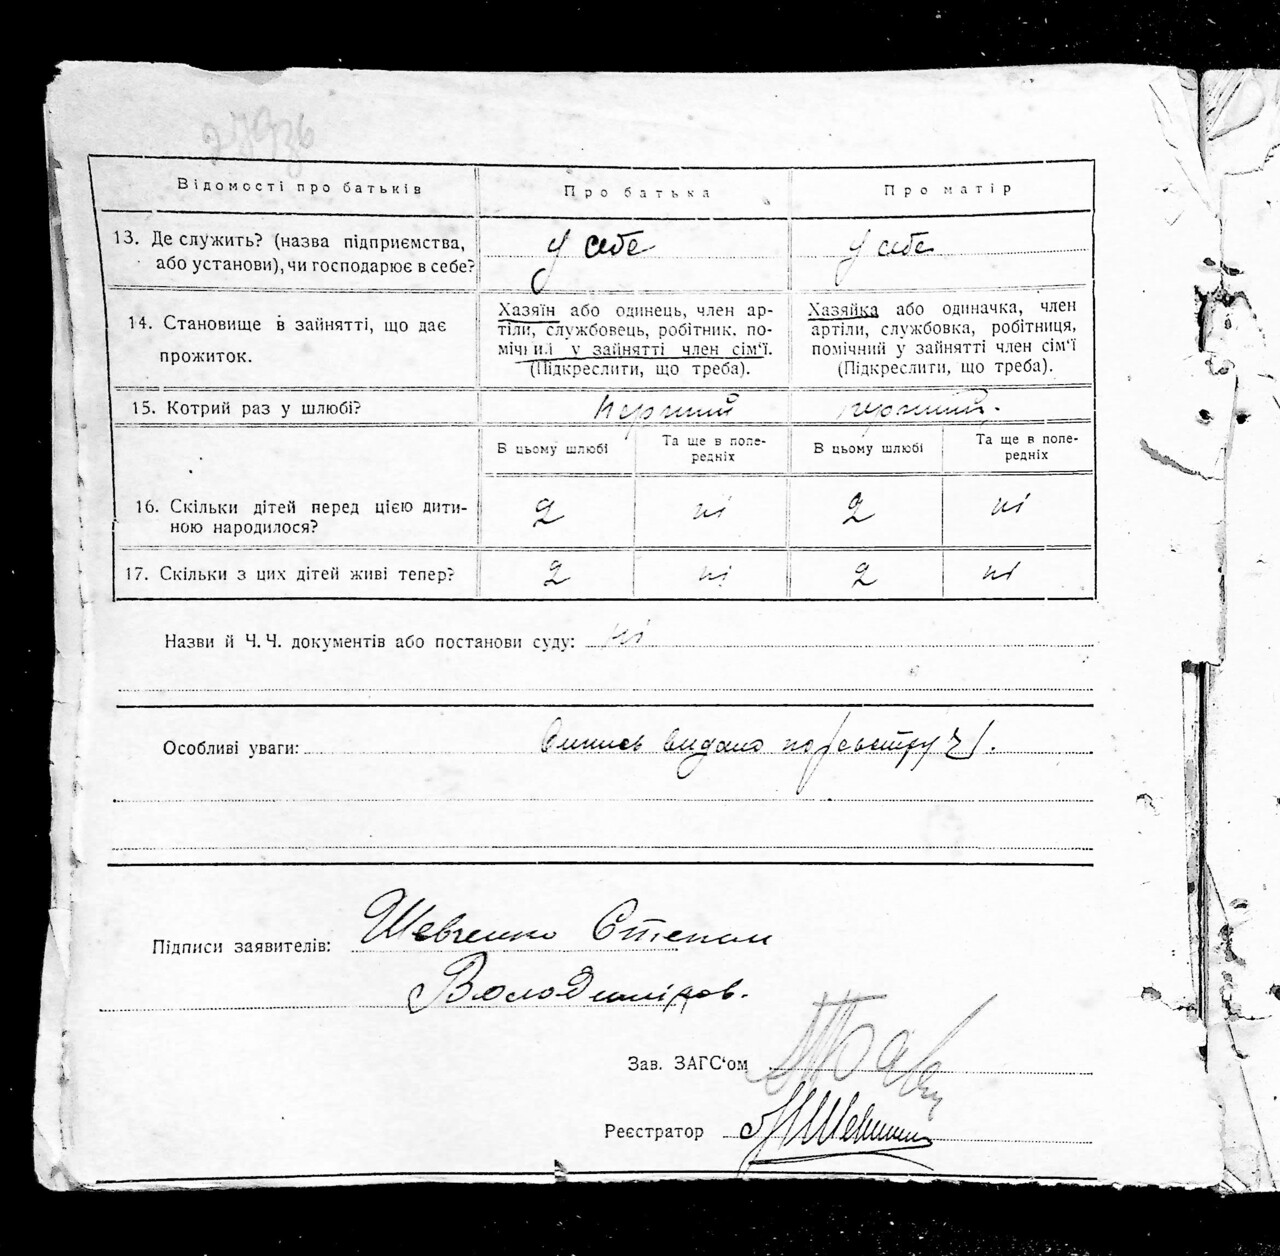 27936
Відомості про батьків Про батька Про матір
13. Де служить? (назва підприємства, або установи), чи господарює в себе? У себе У себе
14. Становище в зайнятті, що дає
прожиток.
Хазяїн або одинець, член ар-
тіли, службовець, робітник. по-
мічний у зайнятті член сім'ї.
(Підкреслити, що треба).
Хазяйка або одиначка, член
артіли, службовка, робітниця,
помічний у зайнятті член сім'ї
(Підкреслити, що треба).
15. Котрий раз у шлюбі? перший перший.
В цьому шлюбі Та ще в попе-
редніх В цьому шлюбі Та ще в попе-
редніх
16. Скільки дітей перед цією дити-
ною народилося? 2 ні 2 ні
17. Скільки з цих дітей живі тепер? 2 ні 2 ні
Назви й Ч. Ч. документів або постанови суду: ні
Особливі уваги: Випись видано по реєстру
Підписи заявителів: Шевченко Степан
Володимиров.
Зав. ЗАГС'ом
Реєстратор